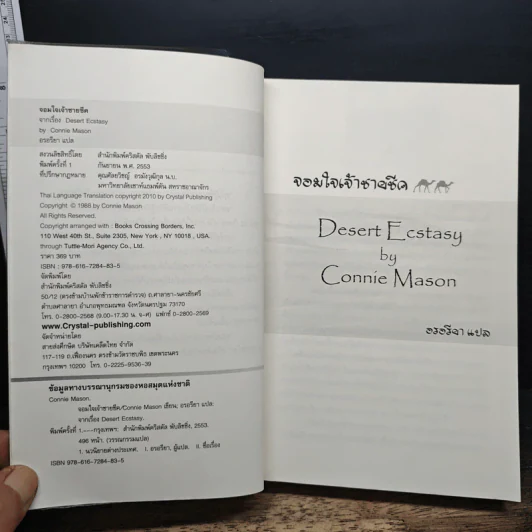 จอมใจเจ้าชายชีค
จากเรื่อง Desert Ecstasy
by Connie Mason
อรอรียา แปล
สงวนลิขสิทธิ์โดย สำนักพิมพ์คริสตัล พับลิชชิ่ง
พิมพ์ครั้งที่ 1 กันยายน พ.ศ. 2553
ที่ปรึกษากฎหมาย น.บ.
Thai Language Translation copyright 2010 by Crystal Publishing
Copyright © 1988 by Connie Mason
All Rights Reserved.
Copyright arranged with : Books Crossing Borders, Inc
110 West 40th St., Suite 2305, New York , NY 10018 , USA.
through Tuttle-Mori Agency Co., Ltd.
ราคา 369 บาท
ISBN : 978-616-7284-83-5
จัดพิมพ์โดย
สำนักพิมพ์คริสตัล พับลิชชิ่ง
50/12 (ตรงข้ามบ้านพักข้าราชการตำรวจ) ถ.ศาลายา-นครชัยศรี
ตำบลศาลายา อำเภอพุทธมณฑล จังหวัดนครปฐม 73170
โทร. 0-2800-2568 (9.00-17.30 น. จ-ศ) แฟกซ์ 0-2800-2569
www.Crystal-publishing.com
จัดจำหน่ายโดย
สายส่งศึกษิต บริษัทเคล็ดไทย จำกัด
117-119 ถ.เฟื่องนคร ตรงข้ามวัดราชบพิธ เขตพระนคร
กรุงเทพฯ 10200 โทร. 0-2225-9536-39
ข้อมูลทางบรรณานุกรมของหอสมุดแห่งชาติ
Connie Mason.
จอมใจเจ้าชายชีค/Connie Mason เขียน; อรอรียา แปล:
จากเรื่อง Desert Ecstasy.
พิมพ์ครั้งที่ 1.---กรุงเทพฯ: สำนักพิมพ์คริสตัล พับลิชชิ่ง, 2553.
496 หน้า. (วรรณกรรมแปล)
1. นวนิยายต่างประเทศ. I. อรอรียา, ผู้แปล. II. ชื่อเรื่อง
ISBN 978-616-7284-83-5
จอมใจเจ้าชายชีค
Desert Ecstasy
by
Connie Mason
อรอรียา แปล